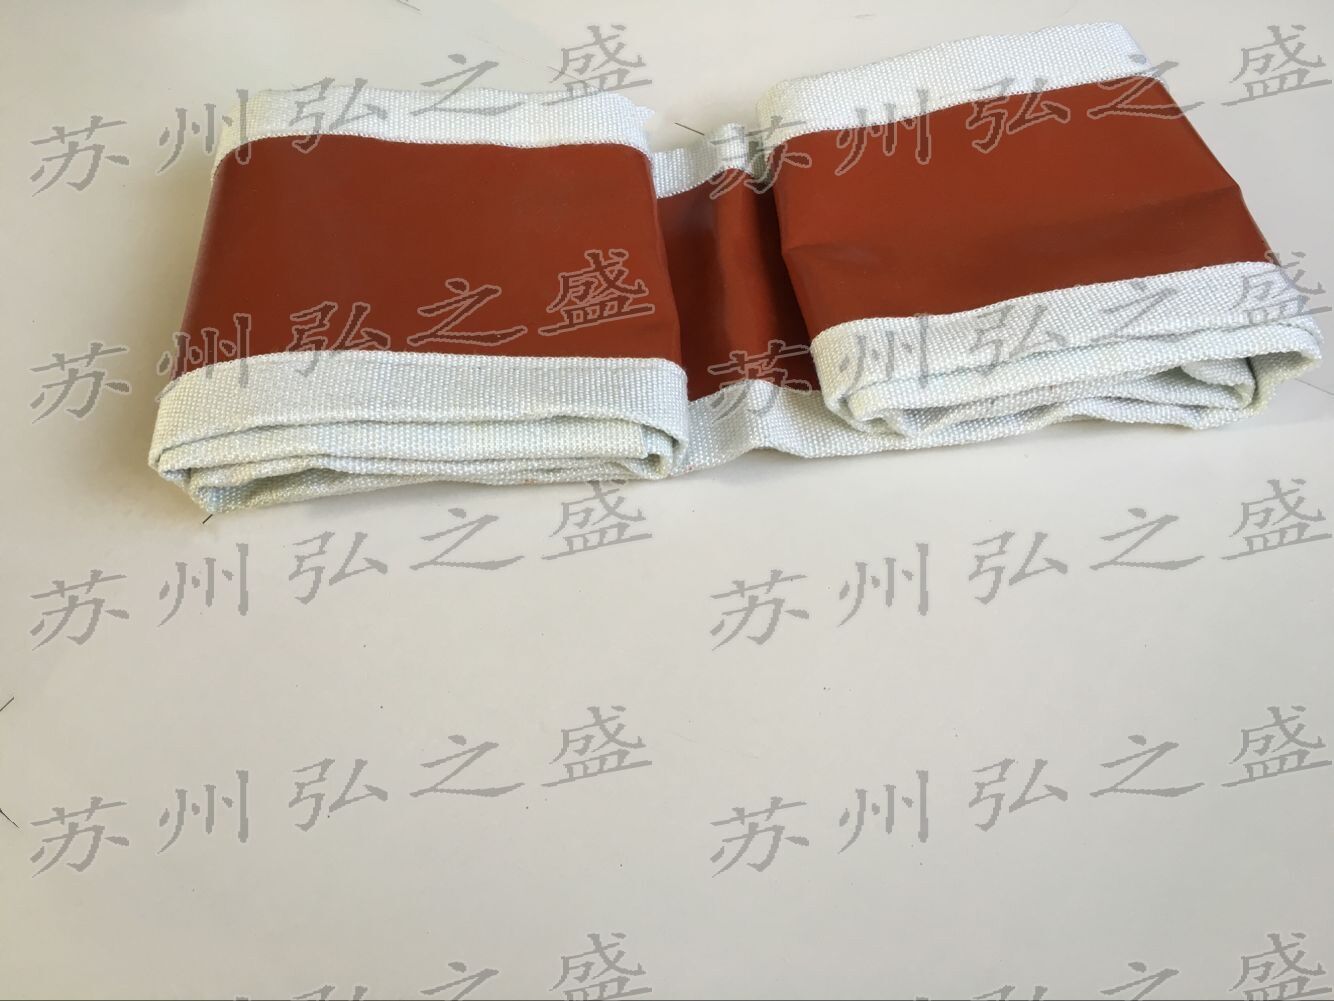 苏州弘之盛 苏州弘之盛
苏州弘之盛 苏州弘之盛
苏州弘之盛 苏州弘之盛
苏州弘之盛 苏州弘之盛
弘之盛 弘之盛